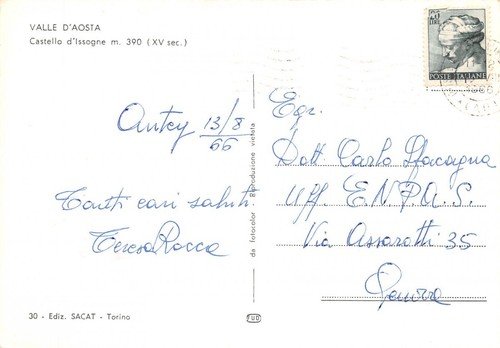 VALLE D'AOSTA
Castello d'Issogne m. 390 (XV sec.)
Antey 13/8
66
Tanti cari saluti.
Teresa Rocca
30 - Ediz. SACAT - Torino
da fotocolor - Riproduzione vietata
POSTE ITALIANE
Egr.
Dott. Carlo Sfacagna
Uff. E.N.P.A.S.
Via Assarotti 35
Genova